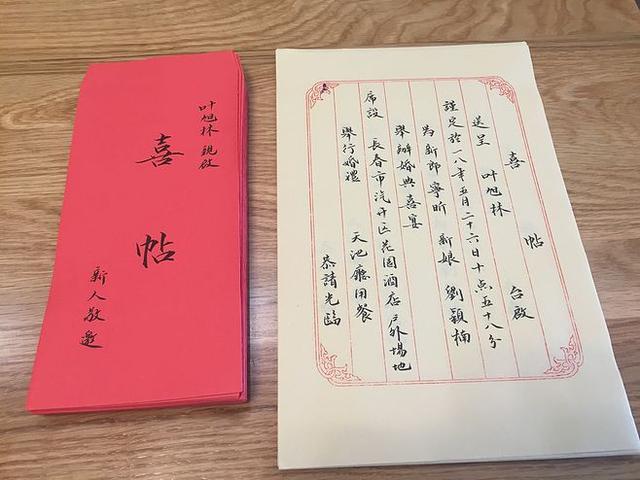 叶旭林 親啟
喜帖
新人敬邀
喜帖
送呈 叶旭林 台啟
謹定於一八年五月二十六日十点五十八分
為新郎寧昕 新娘 劉穎楠
舉辦婚典喜宴
席設 長春市汽开区花園酒店户外場地
舉行婚禮 天池廳用餐
恭請光臨